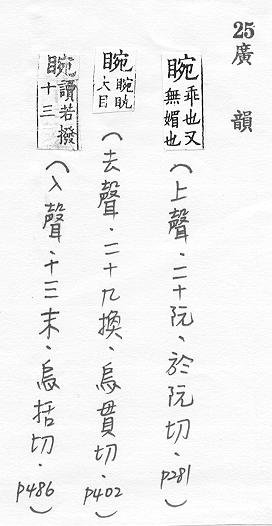 25廣韻
睕乖也又無媚也(上聲、二十阮、於阮切、p281)
睕睕䀪大目(去聲、二十九換、烏貫切、p402)
睕讀若撥十三(入聲、十三末、烏括切、p486)